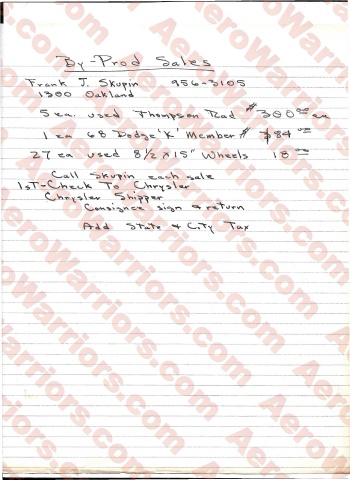 By-Prod Sales
Frank J. Skupin 956-3105
1300 Oakland
5 ea. used Thompson Rad # 300 00 ea
1 ea 68 Dodge 'K' Member # $84 00
27 ea used 8 1/2 x 15" Wheels 18 00
Call Skupin each sale
1ST-Check To Chrysler
Chrysler Shipper
Consignee sign & return
Add State & City Tax
AeroWarriors.com